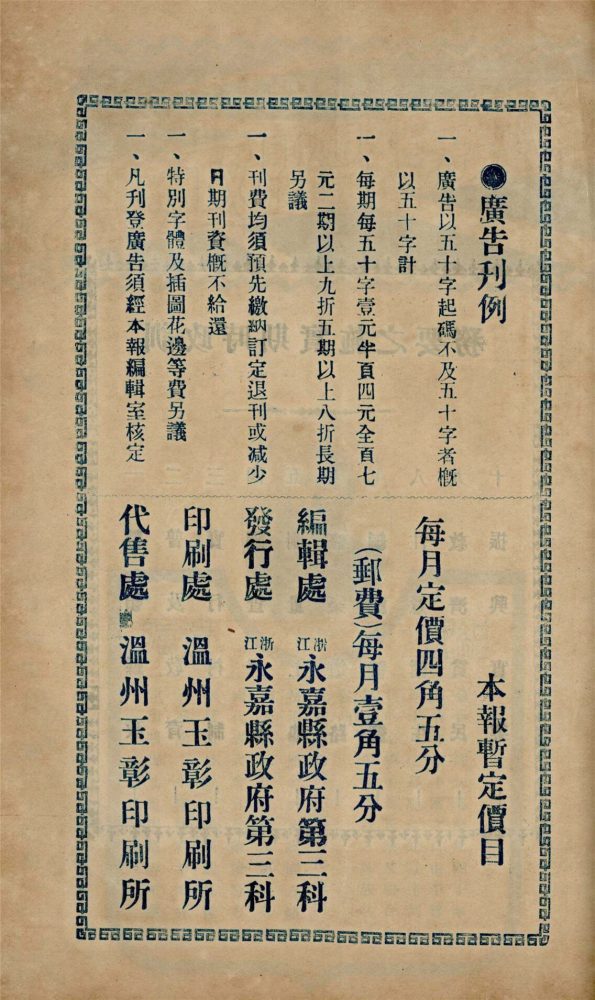 ●廣告刊例
一、廣告以五十字起碼不及五十字者概
以五十字計
一、每期每五十字壹元半頁四元全頁七
元二期以上九折五期以上八折長期
另議
一、刊費均須預先繳納訂定退刊或减少
日期刊資概不給還
一、特別字體及插圖花邊等費另議
一、凡刊登廣告須經本報編輯室核定
本報暫定價目
每月定價四角五分
(郵費)每月壹角五分
編輯處 浙江永嘉縣政府第三科
發行處 浙江永嘉縣政府第三科
印刷處 溫州玉彰印刷所
代售處 溫州玉彰印刷所